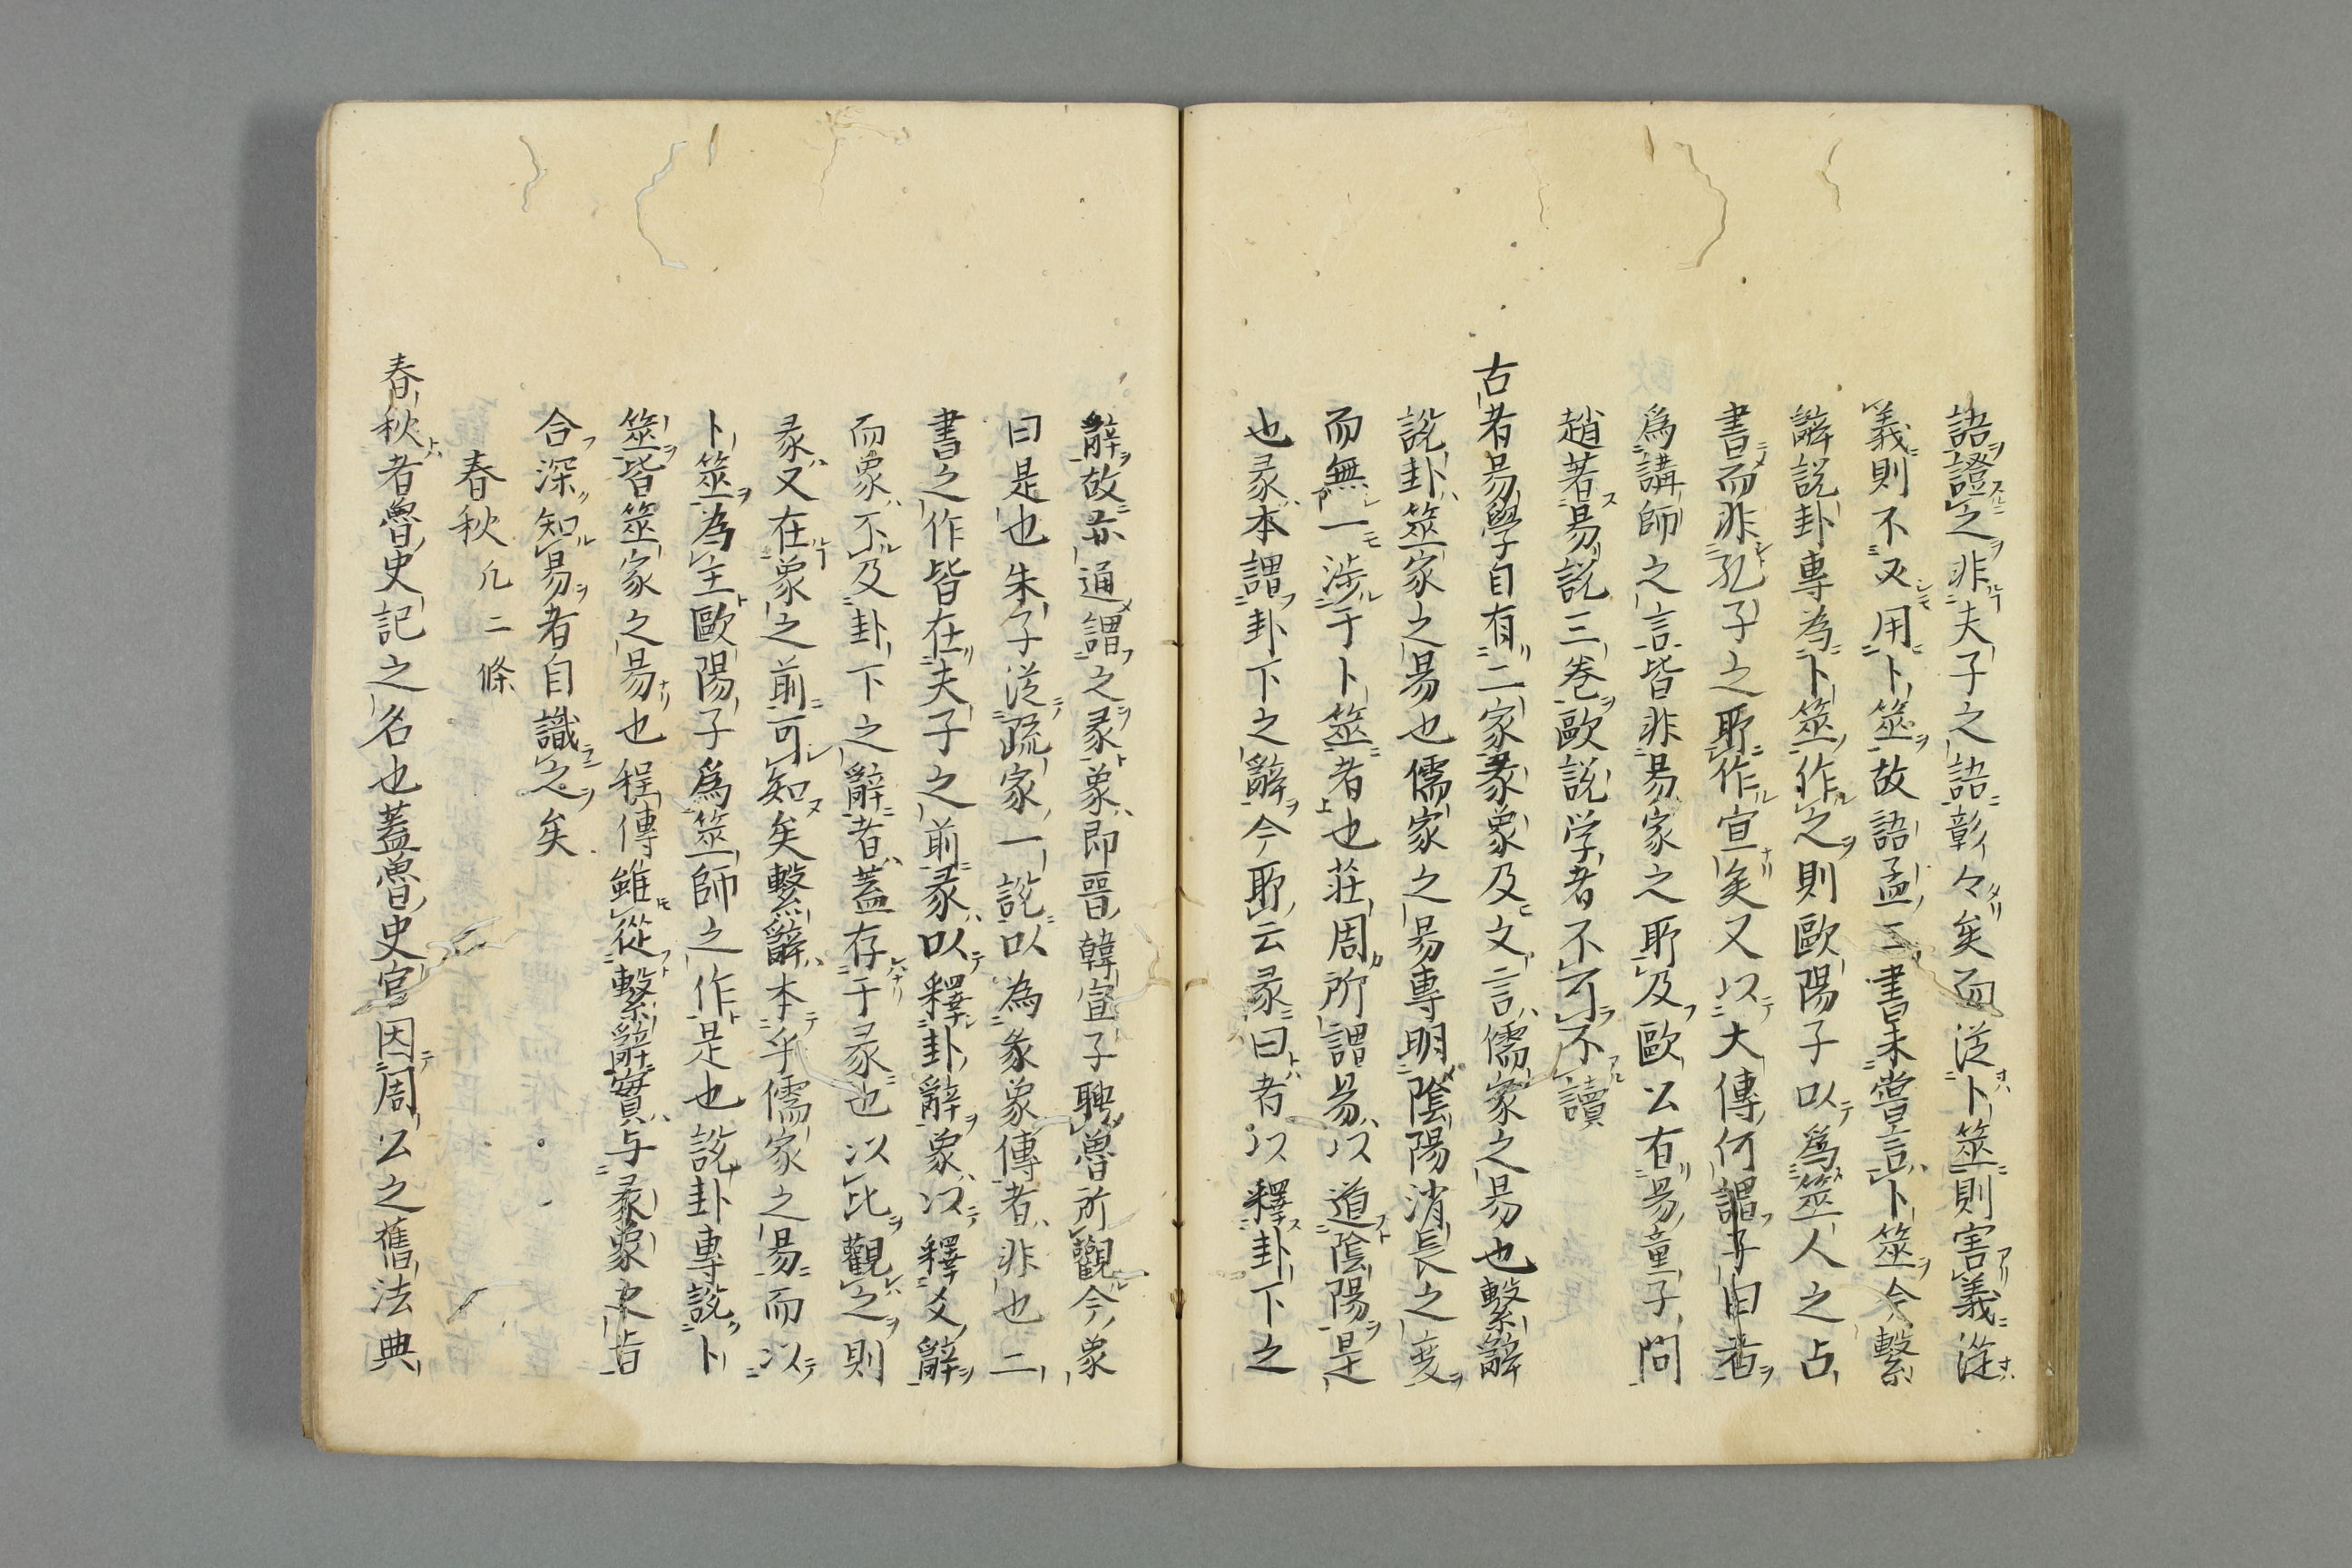 語證之非夫子之語彰々矣而從卜筮則害義從
義則不又用卜筮故語孟二書未嘗言卜筮今繫
辭説卦專為卜筮作之則歐陽子以為筮人之占
書而非孔子之所作宣矣又以大傳何謂子曰者
爲講師之言皆非易家之所及歐公有易童子問
趙著易説三卷歐説学者不可不讀
古者易學自有二家彖象及文言儒家之易也繫辭
説卦筮家之易也儒家之易專明陰陽消長之変
而無一渉于卜筮者也荘周所謂易以道陰陽是
也彖本謂卦下之辭今所云彖曰者以釋卦下之
辭故亦通謂之彖象即晋韓宣子聘魯所觀今象
曰是也朱子從疏家一説以為彖象傳者非也二
書之作皆在夫子之前彖以釋卦辭象以釋爻辭
而象不及卦下之辭者蓋存于彖也以比觀之則
彖又在象之前可知矣繫辭本乎儒家之易而以
卜筮為主歐陽子爲筮師之作是也説卦專説卜
筮皆筮家之易也程傳雖從繫辭實与彖象之旨
合深知易者自識之矣
春秋凡二條
春秋者魯史記之名也蓋魯史官因周公之舊法典